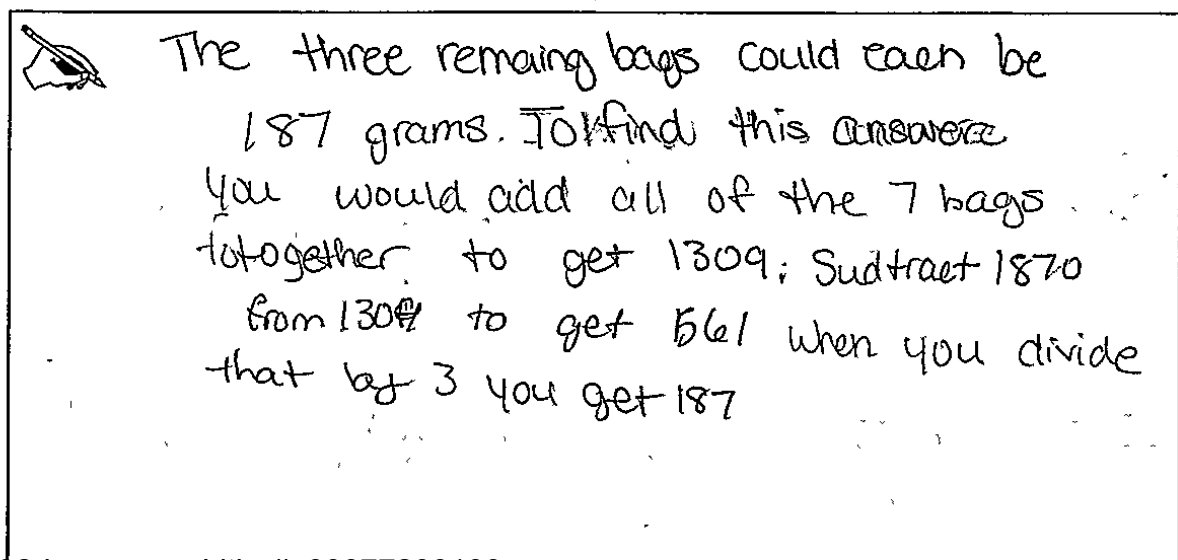 The three remaing bags could each be
187 grams. To find this answere
you would add all of the 7 bags
totogether to get 1309; Sudtract 1870
from 1309 to get 561 when you divide
that by 3 you get 187